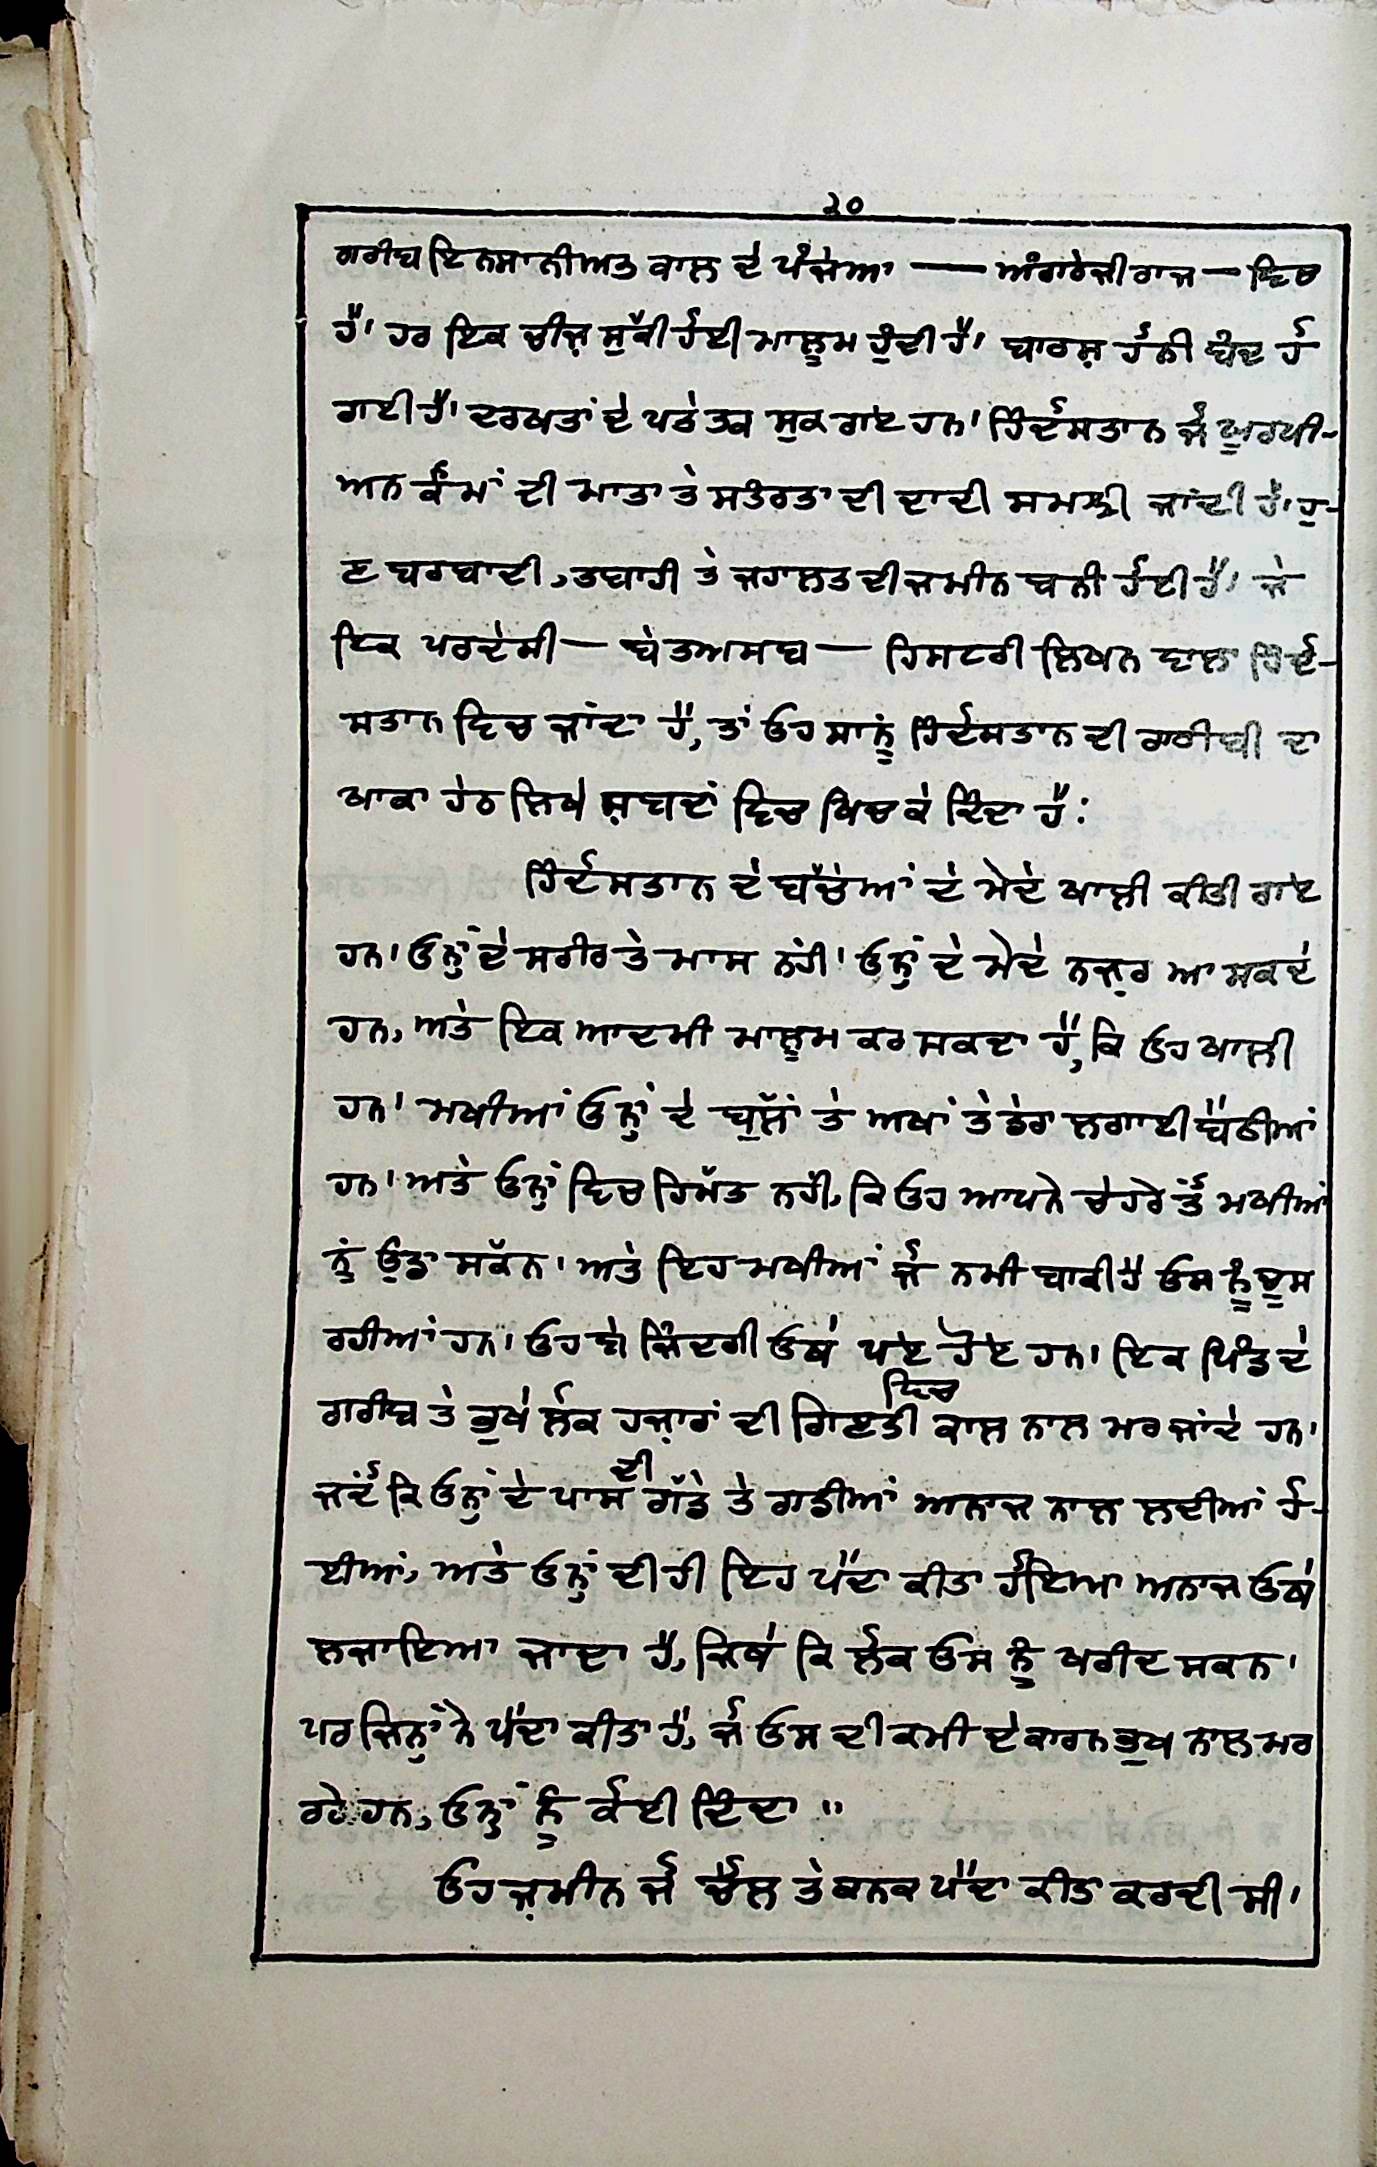 ੨੦
ਗਰੀਬ ਇਨਸਾਨੀਅਤ ਕਾਲ ਦੇ ਪੰਜੇਆ — ਅੰਗਰੇਜ਼ੀ ਰਾਜ — ਵਿਚ
ਹੈ। ਹਰ ਇਕ ਚੀਜ਼ ਸੁੱਕੀ ਹੋਈ ਮਾਲੂਮ ਹੁੰਦੀ ਹੈ। ਬਾਰਸ਼ ਹੋਨੀ ਬੰਦ ਹੋ
ਗਈ ਹੈ। ਦਰਖਤਾਂ ਦੇ ਪਤੇ ਤਕ ਸੁਕ ਗਏ ਹਨ। ਹਿੰਦੋਸਤਾਨ ਜੋ ਯੂਰਪੀ-
ਅਨ ਕੌਮਾਂ ਦੀ ਮਾਤਾ ਤੇ ਸਤੰਰਤਾ ਦੀ ਦਾਦੀ ਸਮਝੀ ਜਾਂਦੀ ਹੈ। ਹੁ-
ਣ ਬਰਬਾਦੀ, ਤਬਾਹੀ ਤੇ ਜਹਾਲਤ ਦੀ ਜ਼ਮੀਨ ਬਨੀ ਹੋਈ ਹੈ। ਜੇ
ਇਕ ਪਰਦੇਸੀ — ਬੇਤਅਸਬ — ਹਿਸਟਰੀ ਲਿਖਨ ਵਾਲਾ ਹਿੰਦੋ-
ਸਤਾਨ ਵਿਚ ਜਾਂਦਾ ਹੈ, ਤਾਂ ਓਹ ਸਾਨੂੰ ਹਿੰਦੋਸਤਾਨ ਦੀ ਗਰੀਬੀ ਦਾ
ਖਾਕਾ ਹੇਠ ਲਿਖੇ ਸ਼ਬਦਾਂ ਵਿਚ ਖਿਚ ਕੇ ਦਿੰਦਾ ਹੈ:
ਹਿੰਦੋਸਤਾਨ ਦੇ ਬੱਚੇਆਂ ਦੇ ਮੇਦੇ ਖਾਲੀ ਕੀਤੀ ਗਏ
ਹਨ। ਓਨ੍ਹਾਂ ਦੇ ਸਰੀਰ ਤੇ ਮਾਸ ਨਹੀਂ। ਓਨ੍ਹਾਂ ਦੇ ਮੇਦੇ ਨਜ਼ਰ ਆ ਸਕਦੇ
ਹਨ, ਅਤੇ ਇਕ ਆਦਮੀ ਮਾਲੂਮ ਕਰ ਸਕਦਾ ਹੈ, ਕਿ ਓਹ ਖਾਲੀ
ਹਨ। ਮਖੀਆਂ ਓਨ੍ਹਾਂ ਦੇ ਬੁਲਾਂ ਤੇ ਅਖਾਂ ਤੇ ਡੇਰਾ ਲਗਾਈ ਬੈਠੀਆਂ
ਹਨ। ਅਤੇ ਓਨ੍ਹਾਂ ਵਿਚ ਹਿਮੱਤ ਨਹੀਂ, ਕਿ ਓਹ ਆਪਨੇ ਚੇਹਰੇ ਤੋਂ ਮਖੀਆਂ
ਨੂੰ ਉਡਾ ਸਕੱਨ। ਅਤੇ ਇਹ ਮਖੀਆਂ ਜੋ ਨਮੀ ਬਾਕੀ ਹੈ ਓਸ ਨੂੰ ਚੂਸ
ਰਹੀਆਂ ਹਨ। ਓਹ ਬੇ ਜ਼ਿੰਦਗੀ ਓਥੇ ਪਏ ਹੋਏ ਹਨ। ਇਕ ਪਿੰਡ ਦੇ
ਗਰੀਬ ਤੇ ਭੁਖੇ ਲੋਕ ਹਜ਼ਾਰਾਂ ਦੀ ਗਿਣਤੀ ਵਿਚ ਕਾਲ ਨਾਲ ਮਰ ਜਾਂਦੇ ਹਨ।
ਜਦੋਂ ਕਿ ਓਨ੍ਹਾਂ ਦੇ ਪਾਸ ਦੀ ਗੱਡੇ ਤੇ ਗਡੀਆਂ ਅਨਾਜ ਨਾਲ ਲਦੀਆਂ ਹੋ-
ਈਆਂ, ਅਤੇ ਓਨ੍ਹਾਂ ਦੀ ਹੀ ਇਹ ਪੈਦਾ ਕੀਤਾ ਹੋਇਆ ਅਨਾਜ ਓਥੇ
ਲਜਾਇਆ ਜਾਦਾ ਹੈ, ਜਿਥੇ ਕਿ ਲੋਕ ਓਸ ਨੂੰ ਖਰੀਦ ਸਕਨ।
ਪਰ ਜਿਨ੍ਹਾਂ ਨੇ ਪੈਦਾ ਕੀਤਾ ਹੈ, ਜੋ ਓਸ ਦੀ ਕਮੀ ਦੇ ਕਾਰਨ ਭੁਖ ਨਾਲ ਮਰ
ਰਹੇ ਹਨ, ਓਨ੍ਹਾਂ ਨੂੰ ਕੋਈ ਦਿੰਦਾ "
ਓਹ ਜ਼ਮੀਨ ਜੋ ਚੌਲ ਤੇ ਕਨਕ ਪੈਦਾ ਕੀਤਾ ਕਰਦੀ ਸੀ।